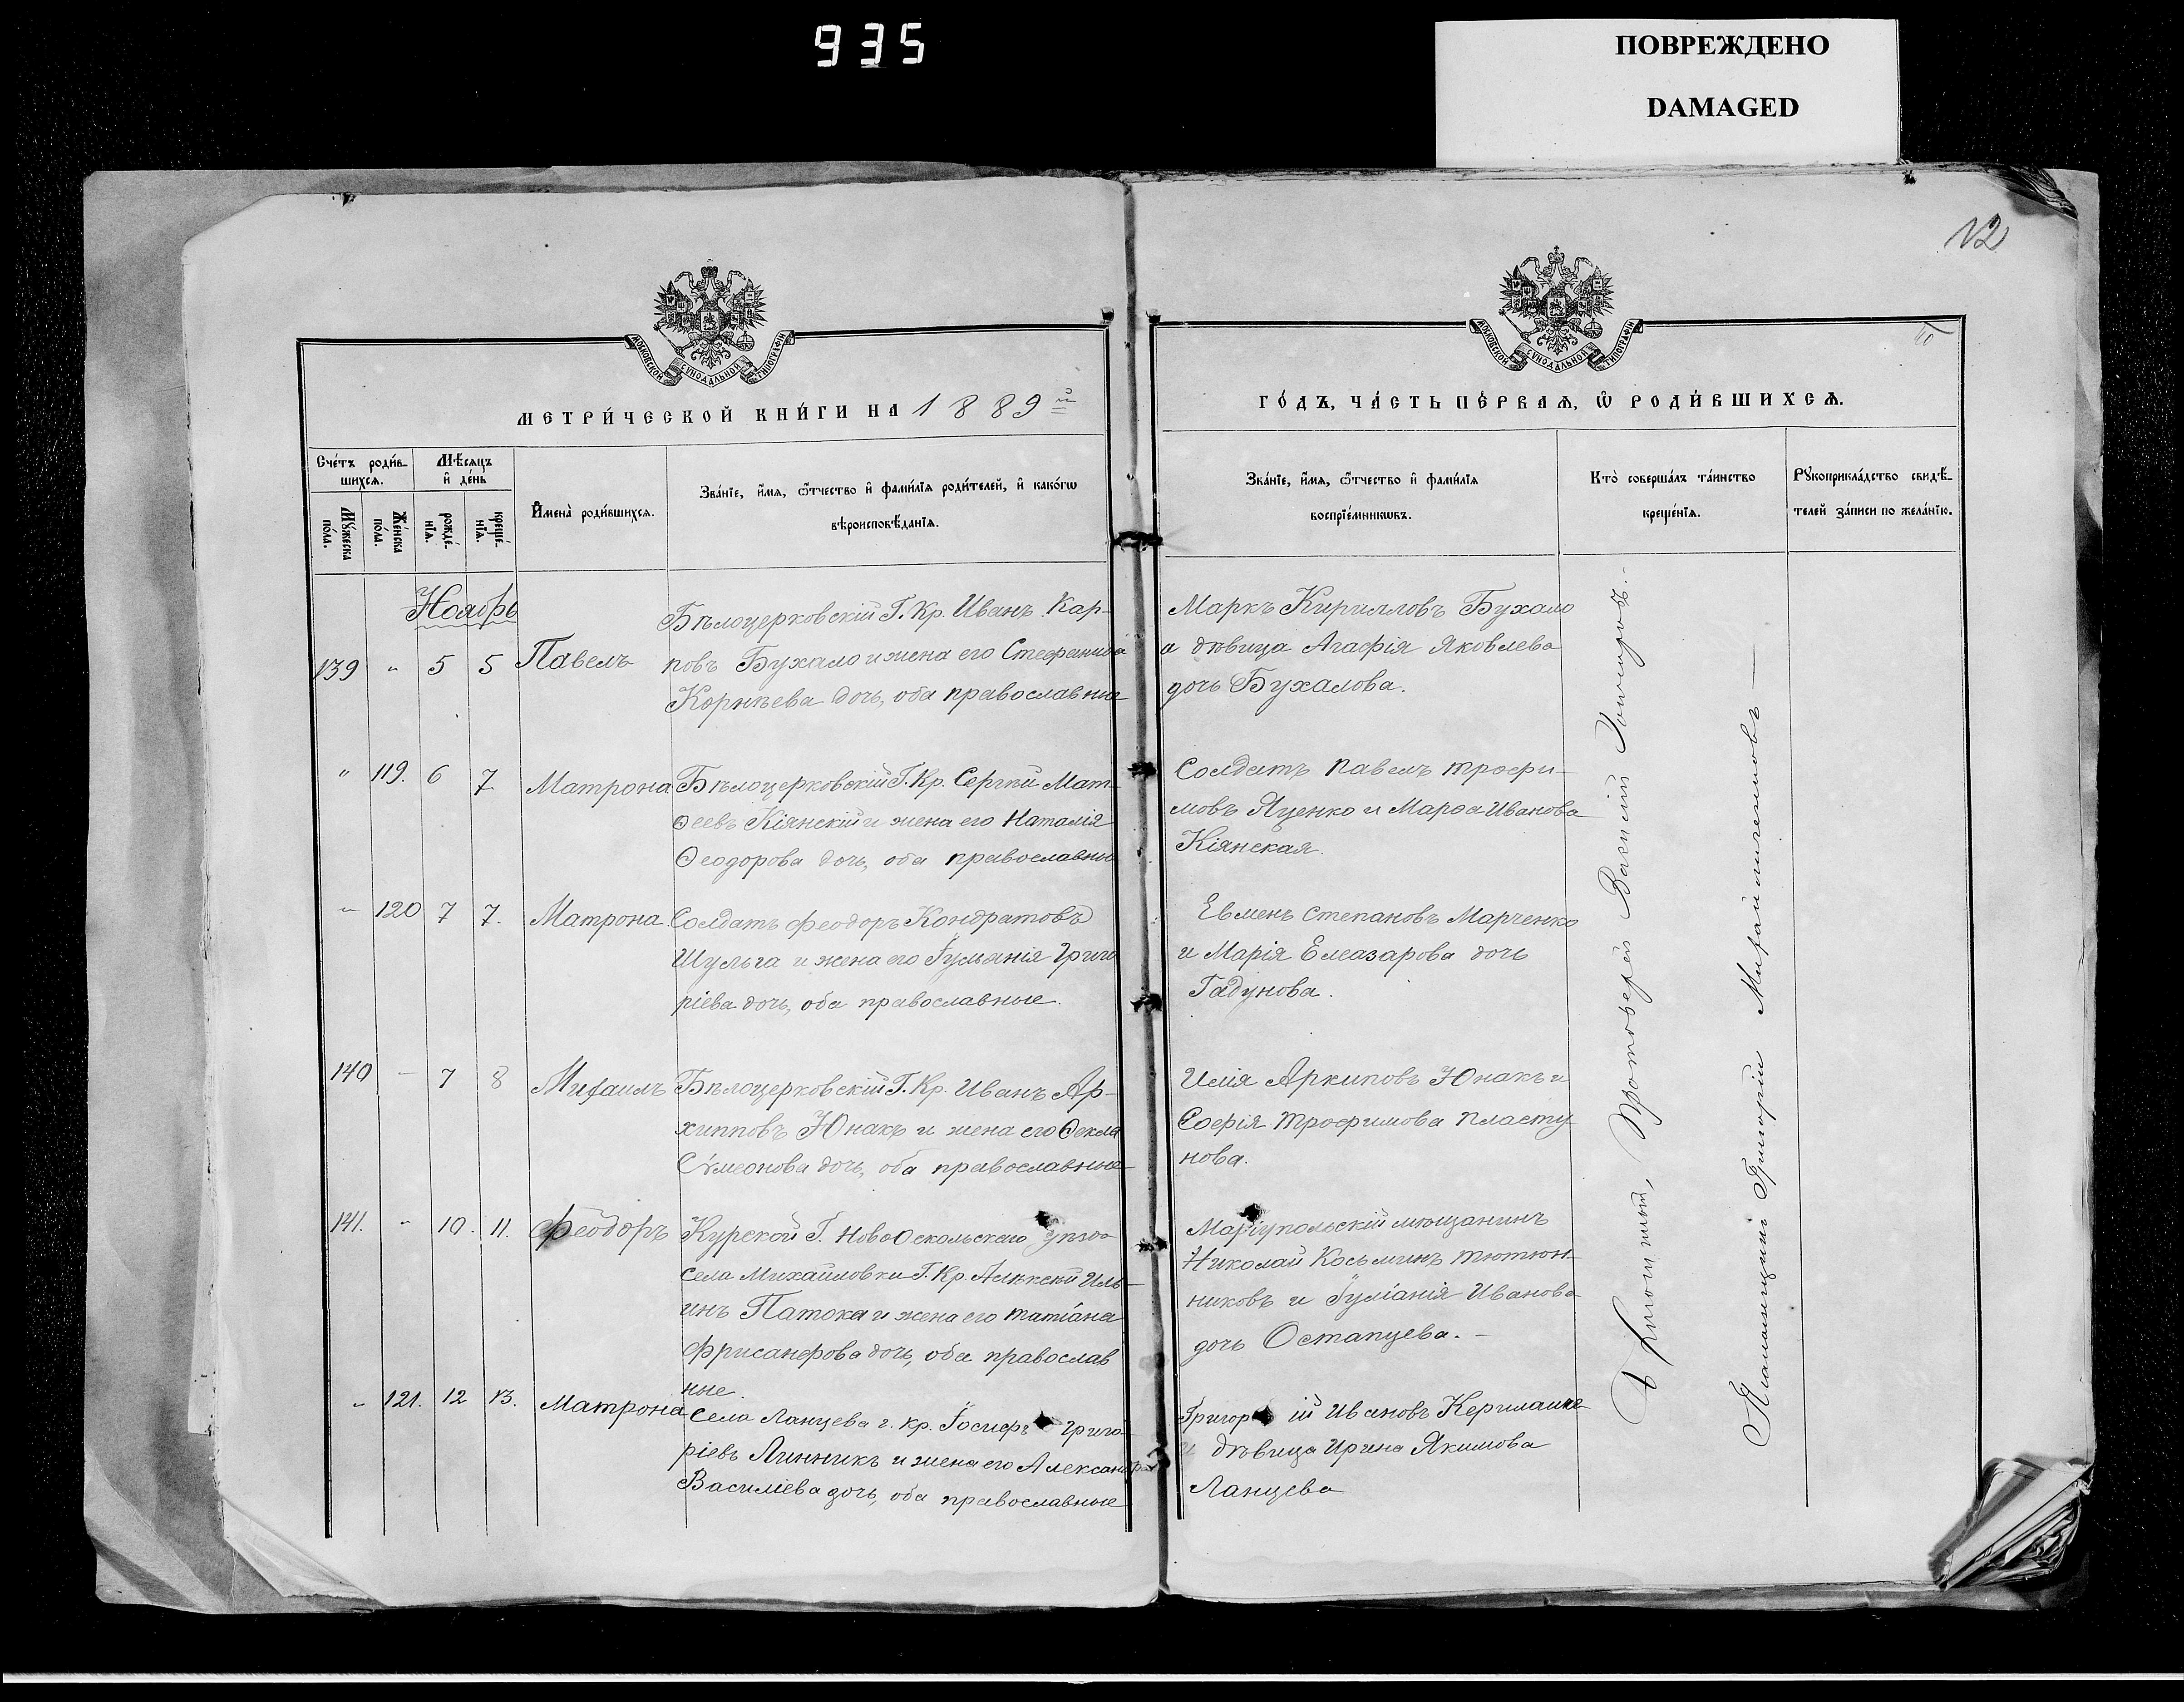 935
ПОВРЕЖДЕНО
DAMAGED
12
МОСКОВСКОЙ СѴНОДАЛЬНОЙ ТИПОГРАФІИ
МОСКОВСКОЙ СѴНОДАЛЬНОЙ ТИПОГРАФІИ
МЕТРИ́ЧЕСКОЙ КНИ́ГИ НА 1889й
ГО́ДЪ, ЧА́СТЬ ПЕ́РВАѦ, Ѿ РОДИ́ВШИХСѦ.
Сче́тъ роди́в-
шихсѧ.
Мѣ́сяцъ
и҆ де́нь
Мꙋ́жеска
по́ла.
Же́нска
по́ла.
рожде́-
нїѧ.
креще́-
нїѧ.
И҆мена̀ роди́вшихсѧ.
Зва́нїе, и҆́мѧ, ѻ҆́тчество и҆ фами́лїѧ роди́телей, и҆ како́гѡ
вѣроисповѣ́данїѧ.
Зва́нїе, и҆́мѧ, ѻ҆́тчество и҆ фами́лїѧ
воспрїе́мникѡвъ.
Кто̀ соверша́лъ та́инство
креще́нїѧ.
Рꙋкоприкла́дство свидѣ́-
телей за́писи по жела́нїю.
Ноябрь
139 " 5 5 Павелъ
Бѣлоцерковскій Г. Кр. Иванъ Кар-
повъ Бухало и жена его Стефанида
Корнѣева дочь, оба православные
Маркъ Кирилловъ Бухало
и дѣвица Агафія Яковлева
дочь Бухалова.
" 119. 6 7 Матрона
Бѣлоцерковскій Г. Кр. Сергѣй Мат-
ѳеевъ Кіянскій и жена его Наталія
Ѳеодорова дочь, оба православные
Солдатъ Павелъ Трофи-
мовъ Яценко и Марѳа Иванова
Кіянская.
" 120 7 7. Матрона.
Солдатъ Феодоръ Кондратовъ
Шульга и жена его Іуліанія Григо
ріева дочь, оба православные.
Евменъ Степановъ Марченко
и Марія Елеазарова дочь
Гадунова.
140 - 7 8 Михаилъ
Бѣлоцерковскій Г. Кр. Иванъ Ар-
хипповъ Юнакъ и жена его Ѳекла
Сѵмеонова дочь, оба православные
Илія Архиповъ Юнакъ и
Софія Трофимова Пласту
нова.
141. " 10. 11. Феодоръ
Курской Г. НовоОскольскаго уѣзда
села Михайловки Г. Кр. Алексѣй Иль-
инъ Патока и жена его Татіана
Фрисанфова дочь, оба православ
ные.
Маріупольскій мѣщанинъ
Николай Косьминъ Тютюн-
никовъ и Іуліанія Иванова
дочь Остапцева. -
" 121. 12 13. Матрона
Села Ланцева г. кр. Іосифъ Григо-
ріевъ Линникъ и жена его Александра
Василіева дочь, оба православные
Григорій Ивановъ
и дѣвица Ирина Якимова
Ланцева
Протоіерей Василій
Псаломщикъ Григорій